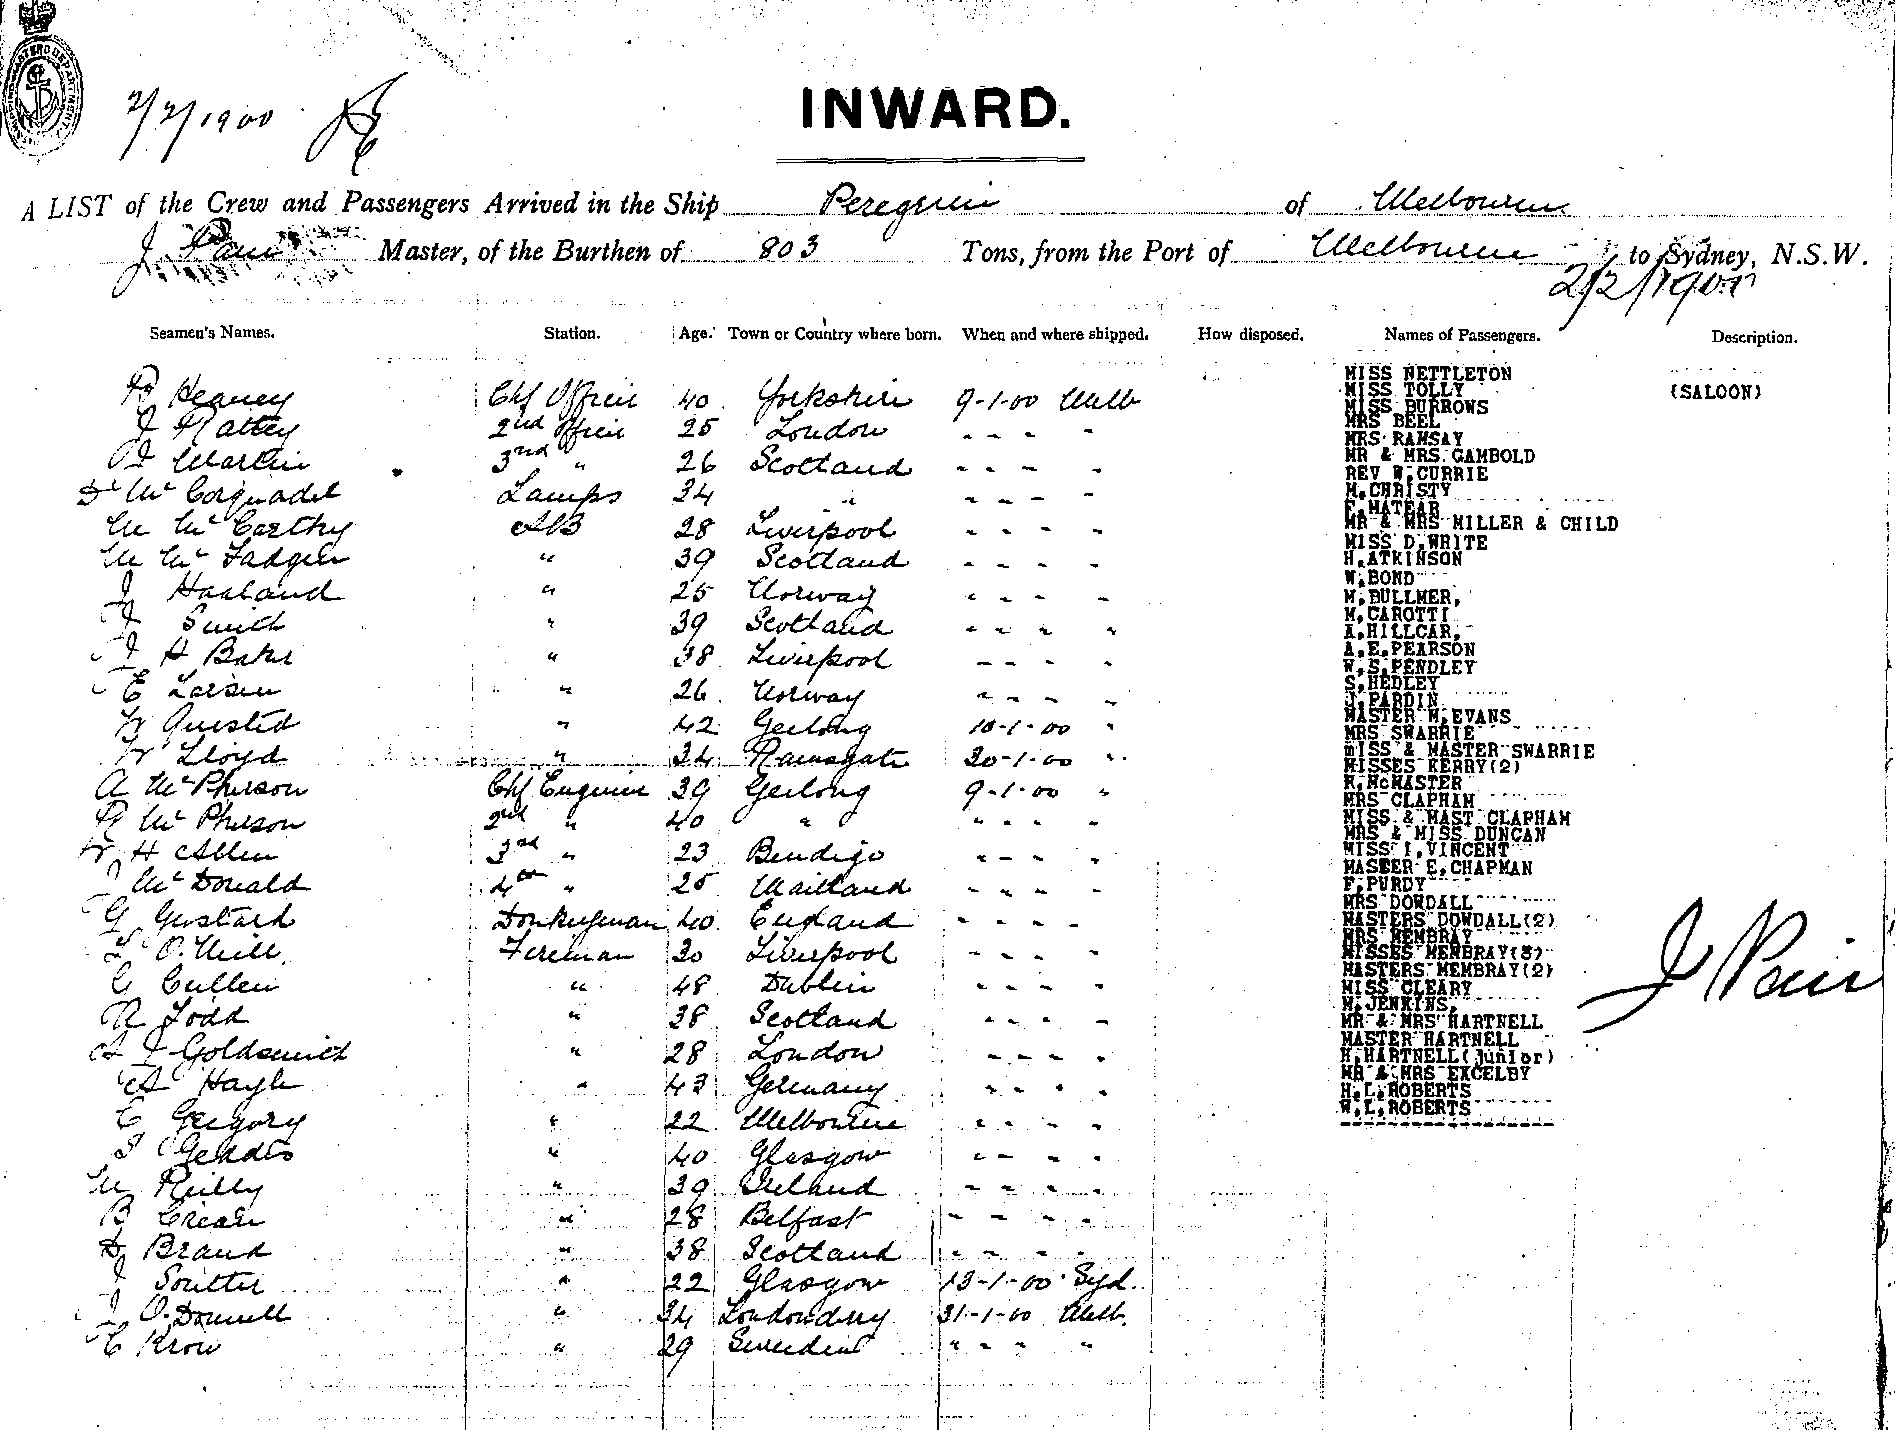 2/2/1900
INWARD.
A LIST of the Crew and Passengers Arrived in the Ship Peregrine of Melbourne
J Pain Master, of the Burthen of 803 Tons, from the Port of Melbourne to Sydney, N.S.W.
2/2/1900
Seamen's Names. Station. Age. Town or Country where born. When and where shipped. How disposed. Names of Passengers. Description.
Heaney Chf Officer 40 Yorkshire 9-1-00 Melb
J Rattey 2nd Officer 25 London - - - -
Martin 3rd " 26 Scotland - - - -
D Mc Corquodel Lamps 34 " - - - -
M McCarthy AB 28 Liverpool - - - -
M Mc Fadgen " 39 Scotland - - - -
J Haaland " 25 Norway - - - -
J Smith " 39 Scotland - - - "
J H Baker " 38 Liverpool - - - "
E Larsen " 26 Norway - - - -
W Quested " 42 Geelong 10-1-00 "
W Lloyd " 34 Ramsgate 30-1-00 "
A McPherson Chf Engineer 39 Geelong 9-1-00 "
R McPherson 2nd " 40 " - - - -
W H Allen 3rd " 23 Bendigo - - - -
J McDonald 4th " 25 Maitland - - - -
G Gustard Donkeyman 40 England - - - -
O.Neill. Fireman 30 Liverpool - - - -
C Cullen " 48 Dublin - - - -
R Todd " 38 Scotland - - - -
A J Goldsmith " 28 London - - - -
A Hayle " 43 Germany - - - -
C Gregory " 22 Melbourne - - - -
J Geddes " 40 Glasgow - - - -
M Reilly " 39 Ireland - - - -
B Crean " 28 Belfast - - - -
D Brand " 38 Scotland - - - -
J Soutter " 22 Glasgow 13-1-00 Syd.
J O.Donnell " 34 Londonderry 31-1-00 Melb.
C Krow " 29 Sweden " - - "
MISS NETTLETON
MISS TOLLY (SALOON)
MISS BURROWS
MRS BEEL
MRS RAMSAY
MR & MRS. GAMBOLD
REV W.CURRIE
M.CHRISTY
E.MATEAR
MR & MRS MILLER & CHILD
MISS D.WRITE
H.ATKINSON
W.BOND
M.BULLMER,
M.CAROTTI
A.HILLCAR,
A.E.PEARSON
W.S.PENDLEY
S.HEDLEY
J.PARDIN
MASTER M.EVANS
MRS SWARRIE
mISS & MASTER SWARRIE
MISSES KERRY(2)
R.McMASTER
MRS CLAPHAM
MISS & MAST CLAPHAM
MRS & MISS DUNCAN
MISS I.VINCENT
MASEER E.CHAPMAN
F.PURDY
MRS DOWDALL
MASTERS DOWDALL(2)
MRS MEMBRAY
MISSES MEMBRAY(3)
MASTERS MEMBRAY(2)
MISS CLEARY
M.JENKINS,
MR & MRS HARTNELL
MASTER HARTNELL
H.HARTNELL(Junior)
MR & MRS EXCELBY
H.L.ROBERTS
W.L.ROBERTS
J Pain